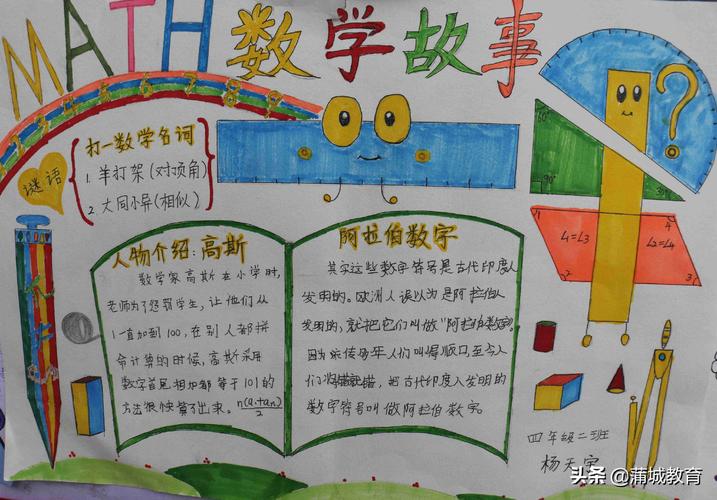 MATH 数学故事
1 2 3 4 5 6 7 8 9
?
谜语
打一数学名词
1. 羊打架(对顶角)
2. 大同小异(相似)
60°
90°
30°
1
4
∠1=∠3
∠2=∠4
2
3
人物介绍:高斯
数学家高斯在小学时,
老师为了惩罚学生,让他们从
1一直加到100,在别人都拼
命计算的时候,高斯采用
数字首尾相加都等于101的
方法很快算了出来。n(a₁+aₙ)/2
阿拉伯数字
其实这些数字符号是古代印度人
发明的。欧洲人误以为是阿拉伯人
发明的,就把它们叫做“阿拉伯数字”。
因为流传多年人们叫得顺口,至今人
们将错就错,把古代印度人发明的
数字符号叫做阿拉伯数字。
四年级二班
杨天宇
头条 @蒲城教育